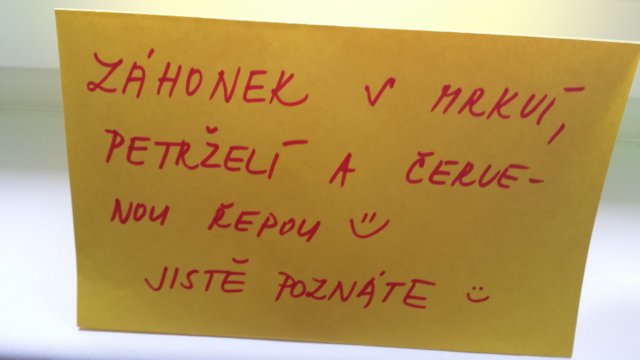 ZÁHONEK V MRKVÍ,
PETRŽELÍ A ČERVE-
NOU ŘEPOU
JISTĚ POZNÁTE